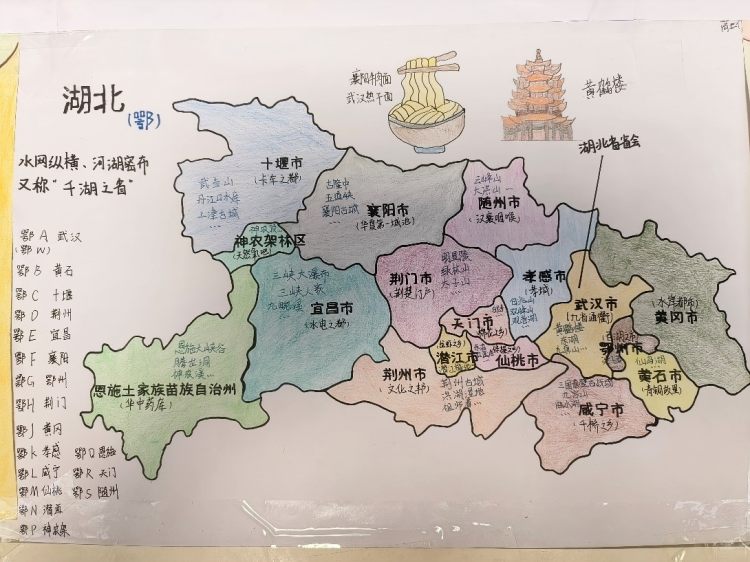 湖北
(鄂)
水网纵横、河湖密布
又称"千湖之省"
襄阳牛肉面
武汉热干面
黄鹤楼
湖北省省会
鄂A 武汉
(鄂W)
鄂B 黄石
鄂C 十堰
鄂D 荆州
鄂E 宜昌
鄂F 襄阳
鄂G 鄂州
鄂H 荆门
鄂J 黄冈
鄂K 孝感 鄂Q 恩施
鄂L 咸宁 鄂R 天门
鄂M 仙桃 鄂S 随州
鄂N 潜江
鄂P 神农架
十堰市
(卡车之都)
武当山
丹江口水库
上津古城
...
神农顶
神农架林区
(天然氧吧)
古隆中
五道峡
襄阳古城
...
襄阳市
(华夏第一城池)
三峰山
大洪山
...
随州市
(汉襄咽喉)
三峡大瀑布
三峡人家
九畹溪
...
宜昌市
(水电之都)
明显陵
绿林山
太子山
...
荆门市
(荆楚门户)
孝感市
(孝城)
双峰山
观音湖
...
恩施大峡谷
腾龙洞
...
恩施土家族苗族自治州
(华中药库)
天门市
潜江市
仙桃市
荆州市
(文化之邦)
荆州古城
...
武汉市
(九省通衢)
黄鹤楼
东湖
...
黄冈市
鄂州市
仙岛湖
黄石市
(青铜故里)
三国赤壁古战场
九宫山
...
咸宁市
(千桥之乡)